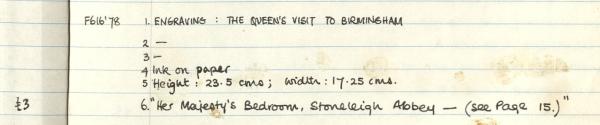 F616'78 1. ENGRAVING : THE QUEEN'S VISIT TO BIRMINGHAM
2 —
3 —
4 Ink on paper
5 Height : 23.5 cms ; width : 17.25 cms.
½3 6. "Her Majesty's Bedroom, Stoneleigh Abbey — (see Page 15.)"